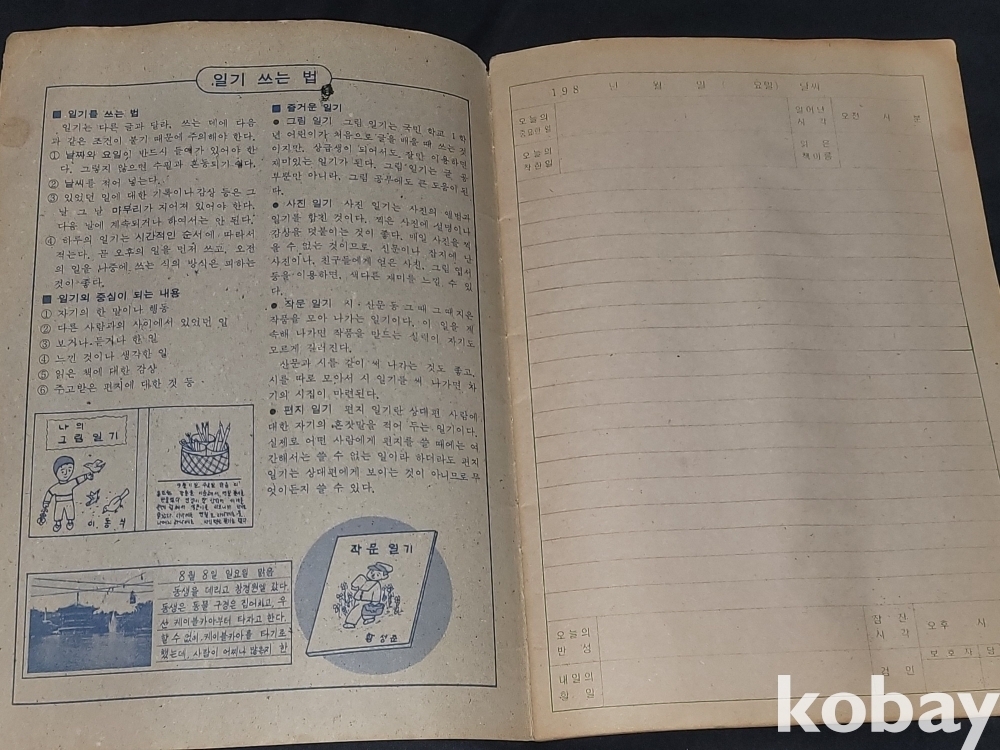 일기 쓰는 법
■ 일기를 쓰는 법
일기는 다른 글과 달라, 쓰는 데에 다음
과 같은 조건이 붙기 때문에 주의해야 한다.
① 날짜와 요일이 반드시 들어가 있어야 한
다. 그렇지 않으면 수필과 혼동되기 쉽다.
② 날씨를 적어 넣는다.
③ 있었던 일에 대한 기록이나 감상 등은 그
날 그 날 마무리가 지어져 있어야 한다.
다음 날에 계속되거나 하여서는 안 된다.
④ 하루의 일기는 시간적인 순서에 따라서
적는다. 곧 오후의 일을 먼저 쓰고, 오전
의 일을 나중에 쓰는 식의 방식은 피하는
것이 좋다.
■ 일기의 중심이 되는 내용
① 자기의 한 말이나 행동
② 다른 사람과의 사이에서 있었던 일
③ 보거나 듣거나 한 일
④ 느낀 것이나 생각한 일
⑤ 읽은 책에 대한 감상
⑥ 주고받은 편지에 대한 것 등
나의
그림 일기
이동식
8월 8일 일요일 맑음
동생을 데리고 창경원엘 갔다
동생은 동물 구경은 집어치고, 우
선 케이블카아부터 타자고 한다.
할 수 없이 케이블카아를 타기로
했는데, 사람이 어찌나 많은지 한
■ 즐거운 일기
● 그림 일기 그림 일기는 국민 학교 1학
년 어린이가 처음으로 글을 배울 때 쓰는 것
이지만, 상급생이 되어서도 잘만 이용하면
재미있는 일기가 된다. 그림 일기는 글 공
부뿐만 아니라, 그림 공부에도 큰 도움이 된
다.
● 사진 일기 사진 일기는 사진의 앨범과
일기를 합친 것이다. 찍은 사진에 설명이나
감상을 덧붙이는 것이 좋다. 매일 사진을 찍
을 수 없는 것이므로, 신문이나 잡지에 난
사진이나, 친구들에게 얻은 사진, 그림 엽서
등을 이용하면, 색다른 재미를 느낄 수 있
다.
● 작문 일기 시·산문 등 그 때 그 때 지은
작품을 모아 나가는 일기이다. 이 일을 계
속해 나가면 작품을 만드는 실력이 자기도
모르게 길러진다.
산문과 시를 같이 써 나가는 것도 좋고,
시를 따로 모아서 시 일기를 써 나가면, 차
기의 시집이 마련된다.
● 편지 일기 편지 일기란 상대편 사람에
대한 자기의 혼잣말을 적어 두는 일기이다.
실제로 어떤 사람에게 편지를 쓸 때에는 여
간해서는 쓸 수 없는 일이라 하더라도 편지
일기는 상대편에게 보이는 것이 아니므로 무
엇이든지 쓸 수 있다.
작문 일기
황성준
198 년 월 일 (요일) 날씨
오늘의
중요한 일
일어난
시각
오전 시 분
오늘의
착한일
읽은
책이름
오늘의
반성
잠 잔
시각
오후 시
내일의
할 일
검인
보호자 담
kobay